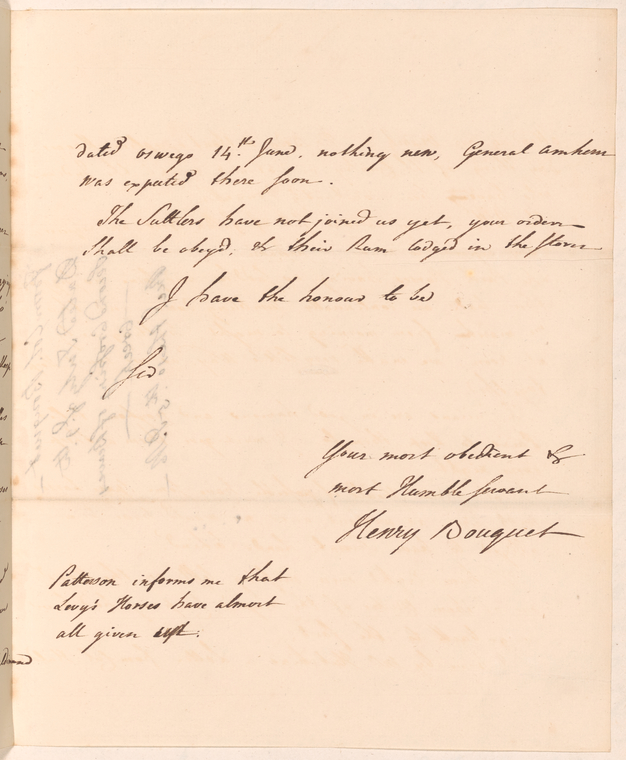 dated oswego 14.th June, nothing new, General Amherst
was expected there soon.
The Suttlers have not joined us yet, your orders
Shall be obeyd, & their Rum lodged in the Stores
I have the honour to be
Sir
Your most obedient &
most Humble Servant
Henry Bouquet
Patterson informs me that
Levy's Horses have almost
all given up.